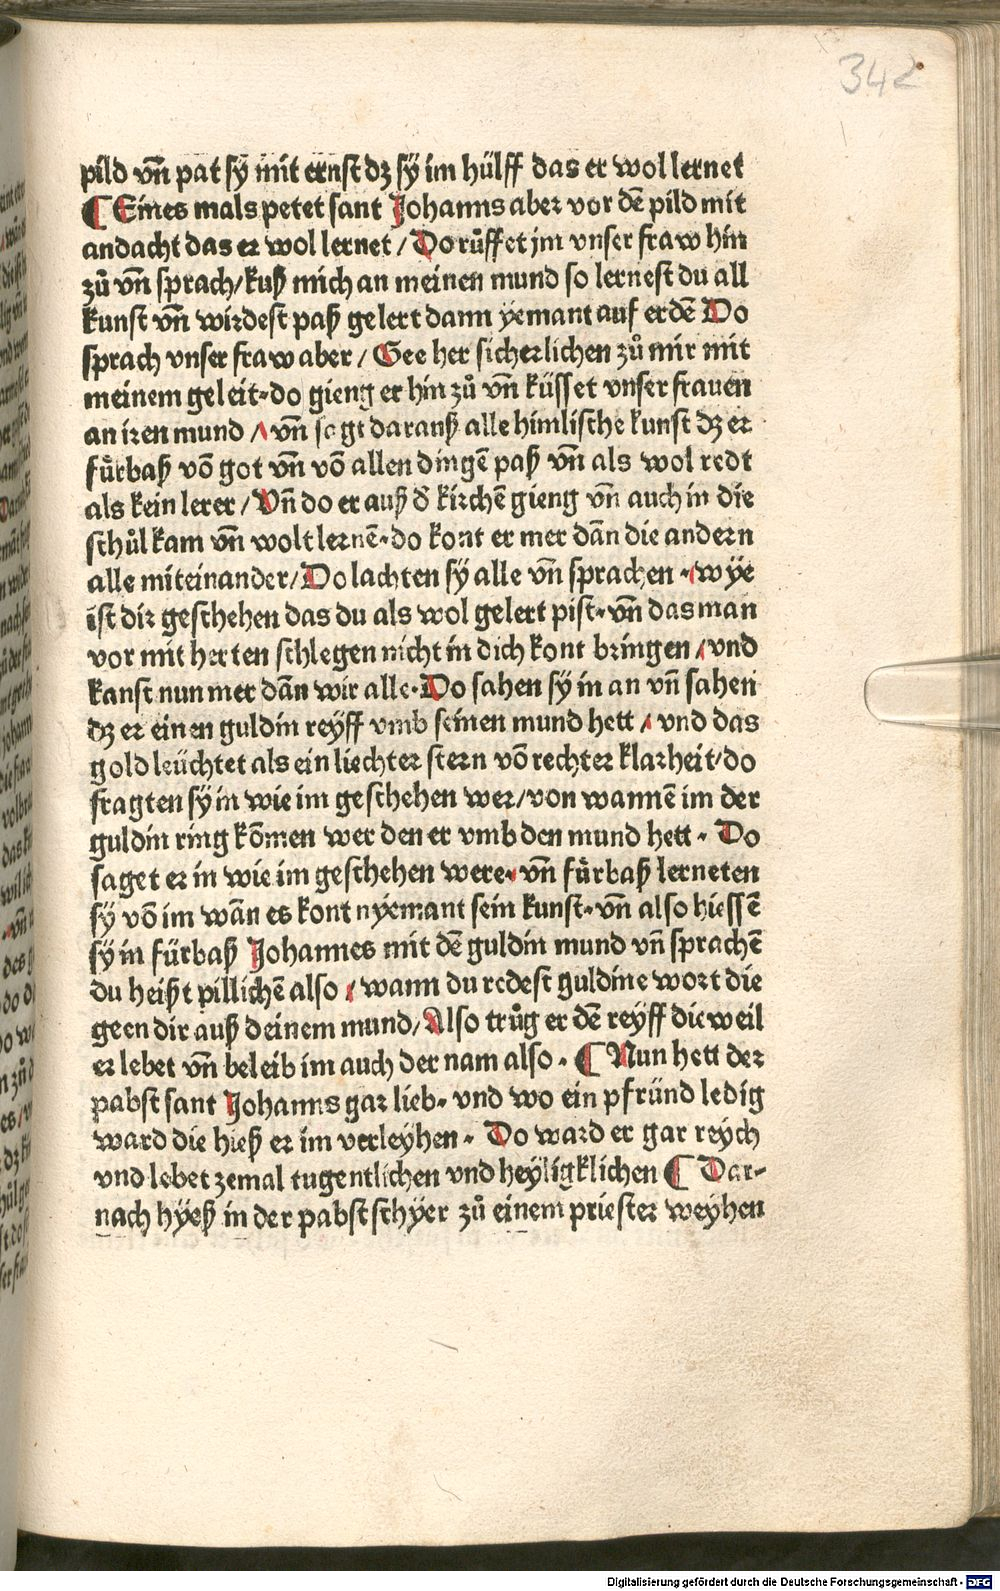 342
pild vn̄ pat sÿ mit ernst dʒ sÿ im hülff das er wol lernet
¶ Eines mals petet sant Johanns aber vor dē pild mit
andacht das er wol lernet / Do růffet jm vnser fraw hin
zů vn̄ sprach / kuß mich an meinen mund so lernest du all
kunst vn̄ wirdest paß gelert dann yemant auf erdē Do
sprach vnser fraw aber / Gee her sicherlichen zů mir mit
meinem geleit. do gieng er hin zů vn̄ küsset vnser frauen
an iren mund / vn̄ sogt darauß alle himlische kunst dʒ er
fůrbaß vō got vn̄ vō allen dingē paß vn̄ als wol redt
als kein lerer / Vn̄ do er auß d̄ kirchē gieng vn̄ auch in die
schůl kam vn̄ wolt lernē. do kont er mer dān die andern
alle miteinander / Do lachten sÿ alle vn̄ sprachen . wÿe
ist dir geschehen das du als wol gelert pist. vn̄ das man
vor mit herten schlegen nicht in dich kont bringen / vnd
kanst nun mer dān wir alle. Do sahen sÿ in an vn̄ sahen
dʒ er einen guldin reÿff vmb seinen mund hett / vnd das
gold leüchtet als ein liechter stern vō rechter klarheit / do
fragten sÿ in wie im geschehen wer / von wannē im der
guldin ring kōmen wer den er vmb den mund hett . Do
saget er in wie im geschehen were. vn̄ fůrbaß lerneten
sÿ vō im wān es kont nÿemant sein kunst. vn̄ also hiessē
sÿ in fürbaß Johannes mit dē guldin mund vn̄ sprachē
du heißt pillichē also / wann du redest guldine wort die
geen dir auß deinem mund / Also trůg er dē reÿff die weil
er lebet vn̄ beleib im auch der nam also . ¶ Nun hett der
pabst sant Johanns gar lieb. vnd wo ein pfründ ledig
ward die hieß er im verleÿhen . Do ward er gar reÿch
vnd lebet zemal tugentlichen vnd heÿligklichen ¶ Dar-
nach hÿeß in der pabst schÿer zů einem priester weÿhen
Digitalisierung gefördert durch die Deutsche Forschungsgemeinschaft - DFG